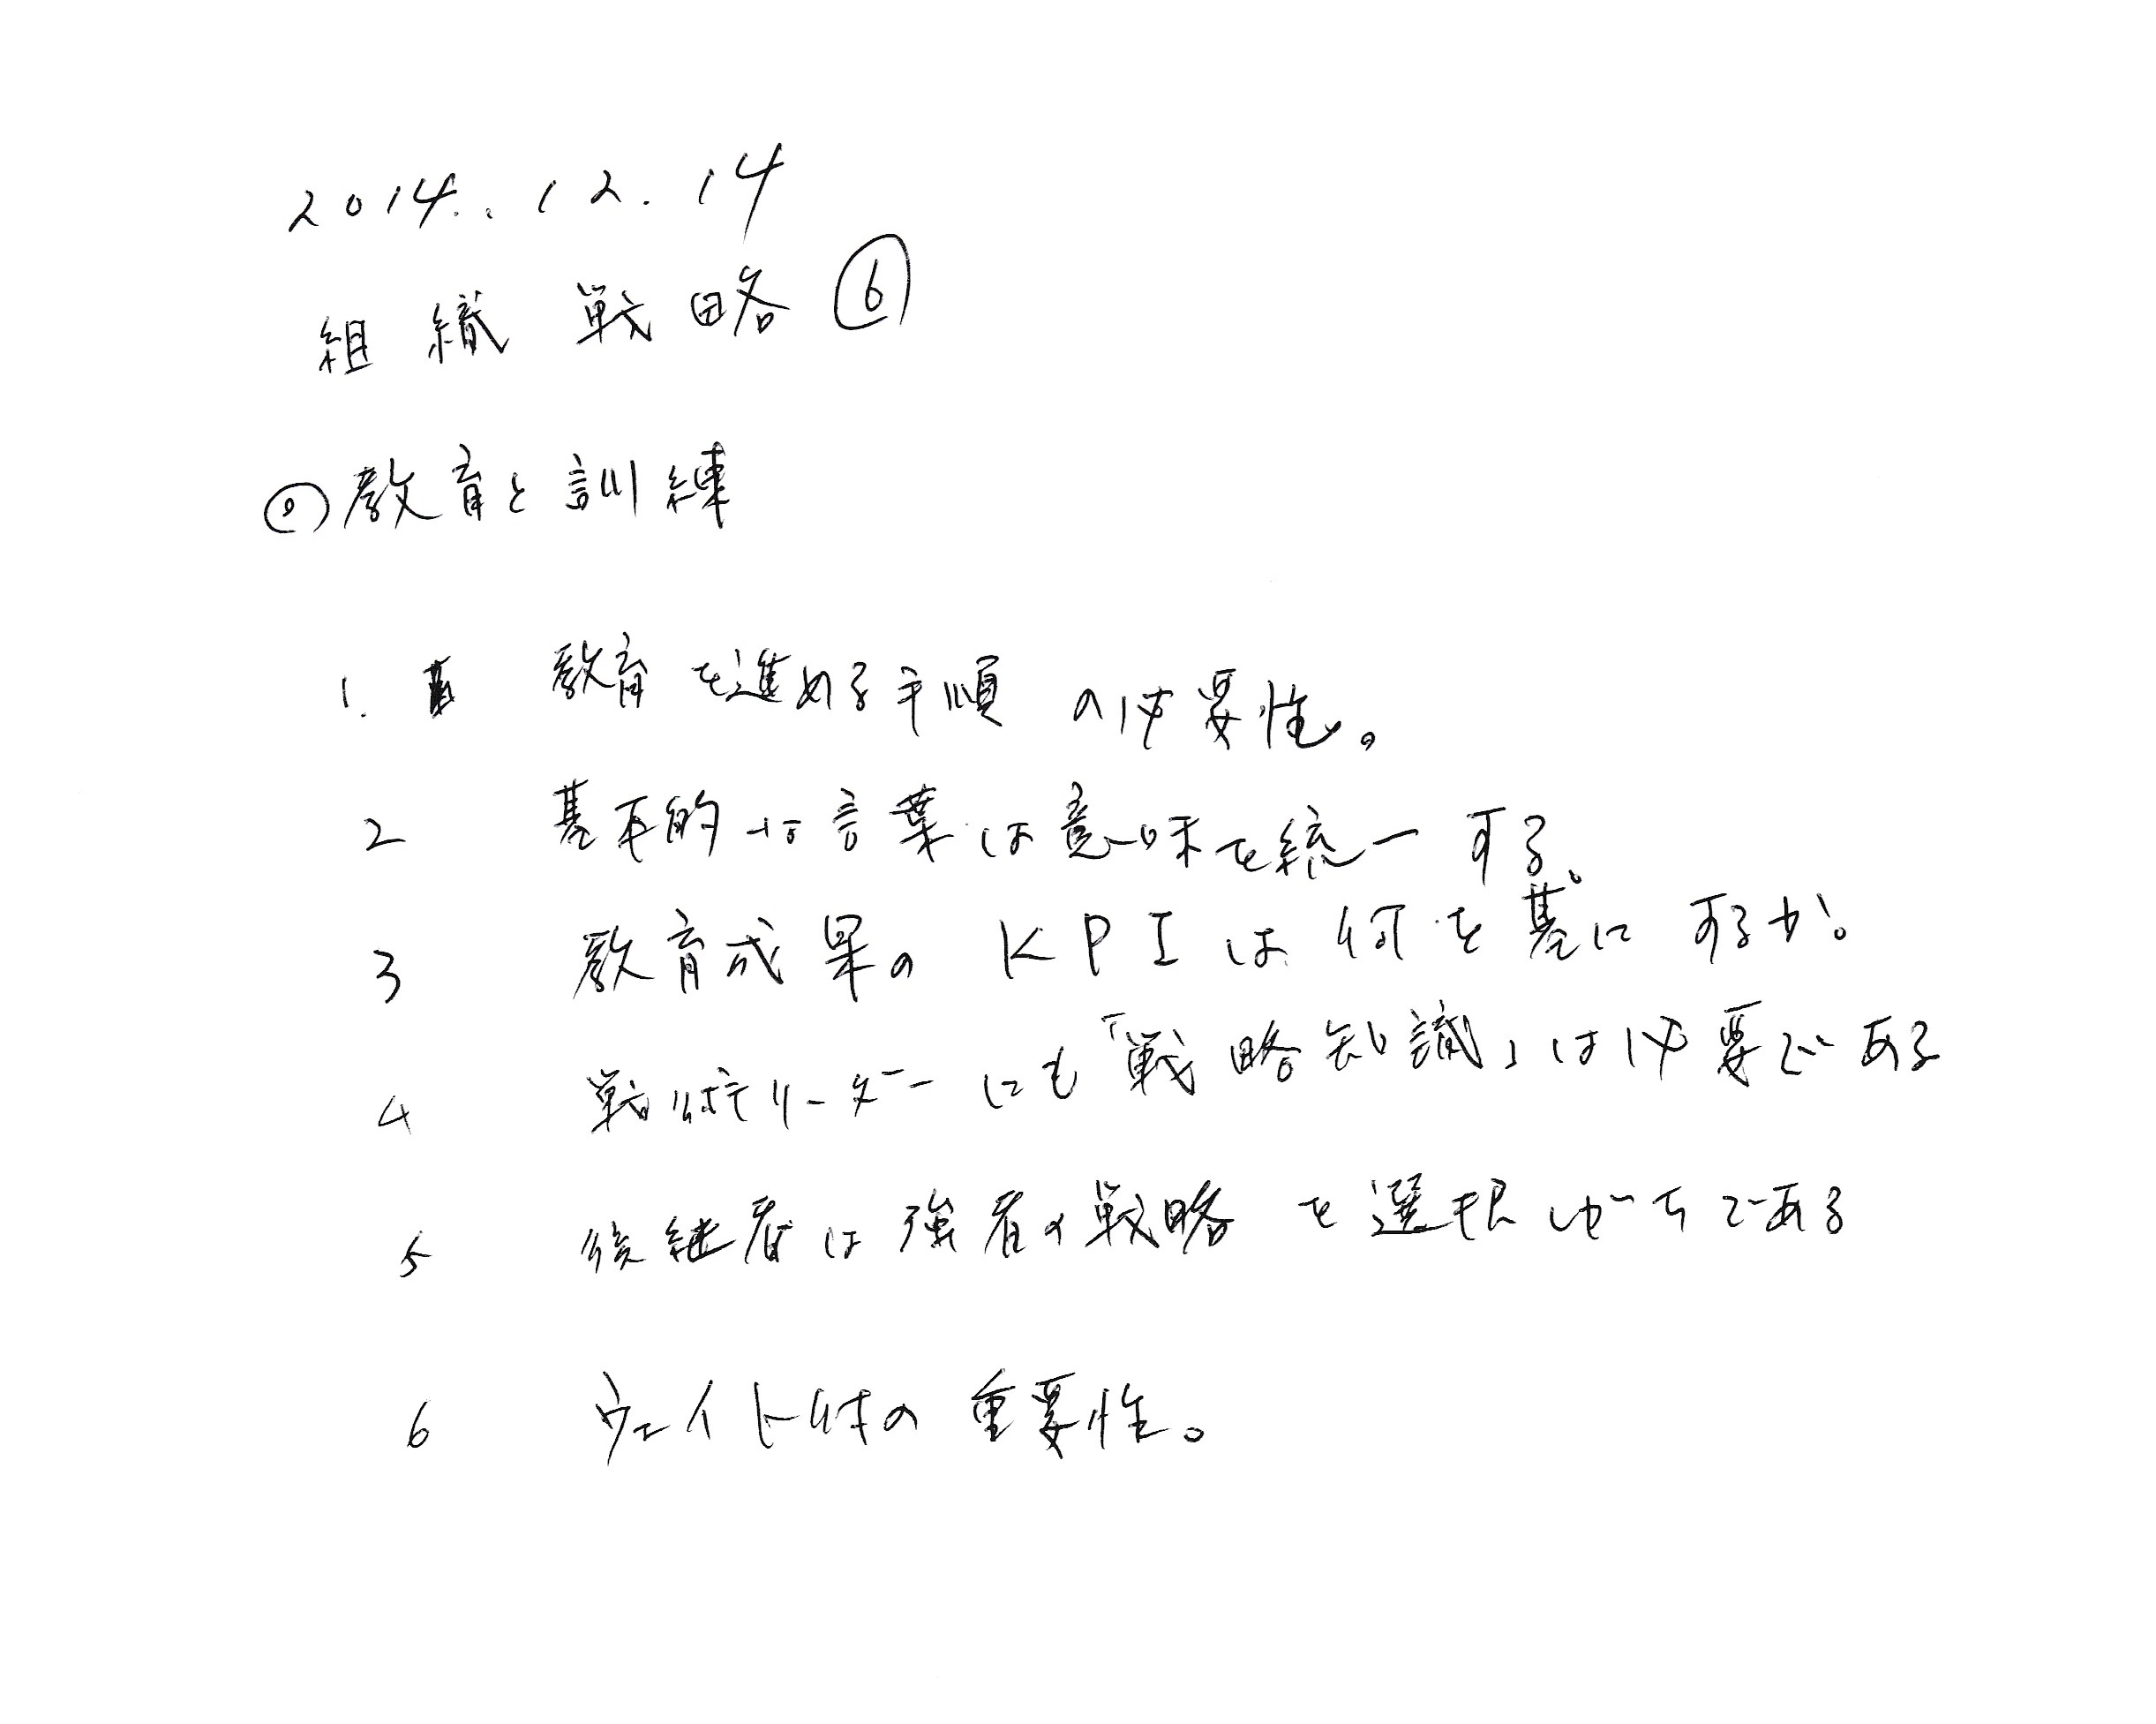 2014.12.14
組織戦略⑥
◎教育と訓練
1. 教育を進める手順の必要性。
2 基本的な言葉は意味を統一する。
3 教育成果のKPIは何を基にするか。
4 戦術リーダーにも「戦略知識」は必要である
5 後継者は強者の戦略を選択しがちである
6 ウェイト付の重要性。